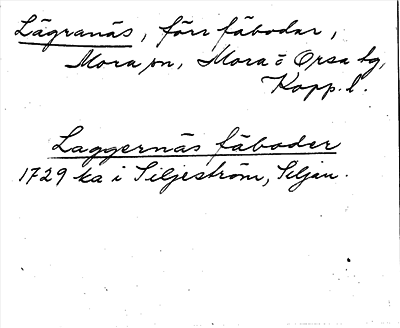 Lägranäs, förr fäbodar,
Mora sn, Mora o Orsa tg,
Kopp. l.
Laggernäs fäboder
1729 ka i Siljeström, Siljan.